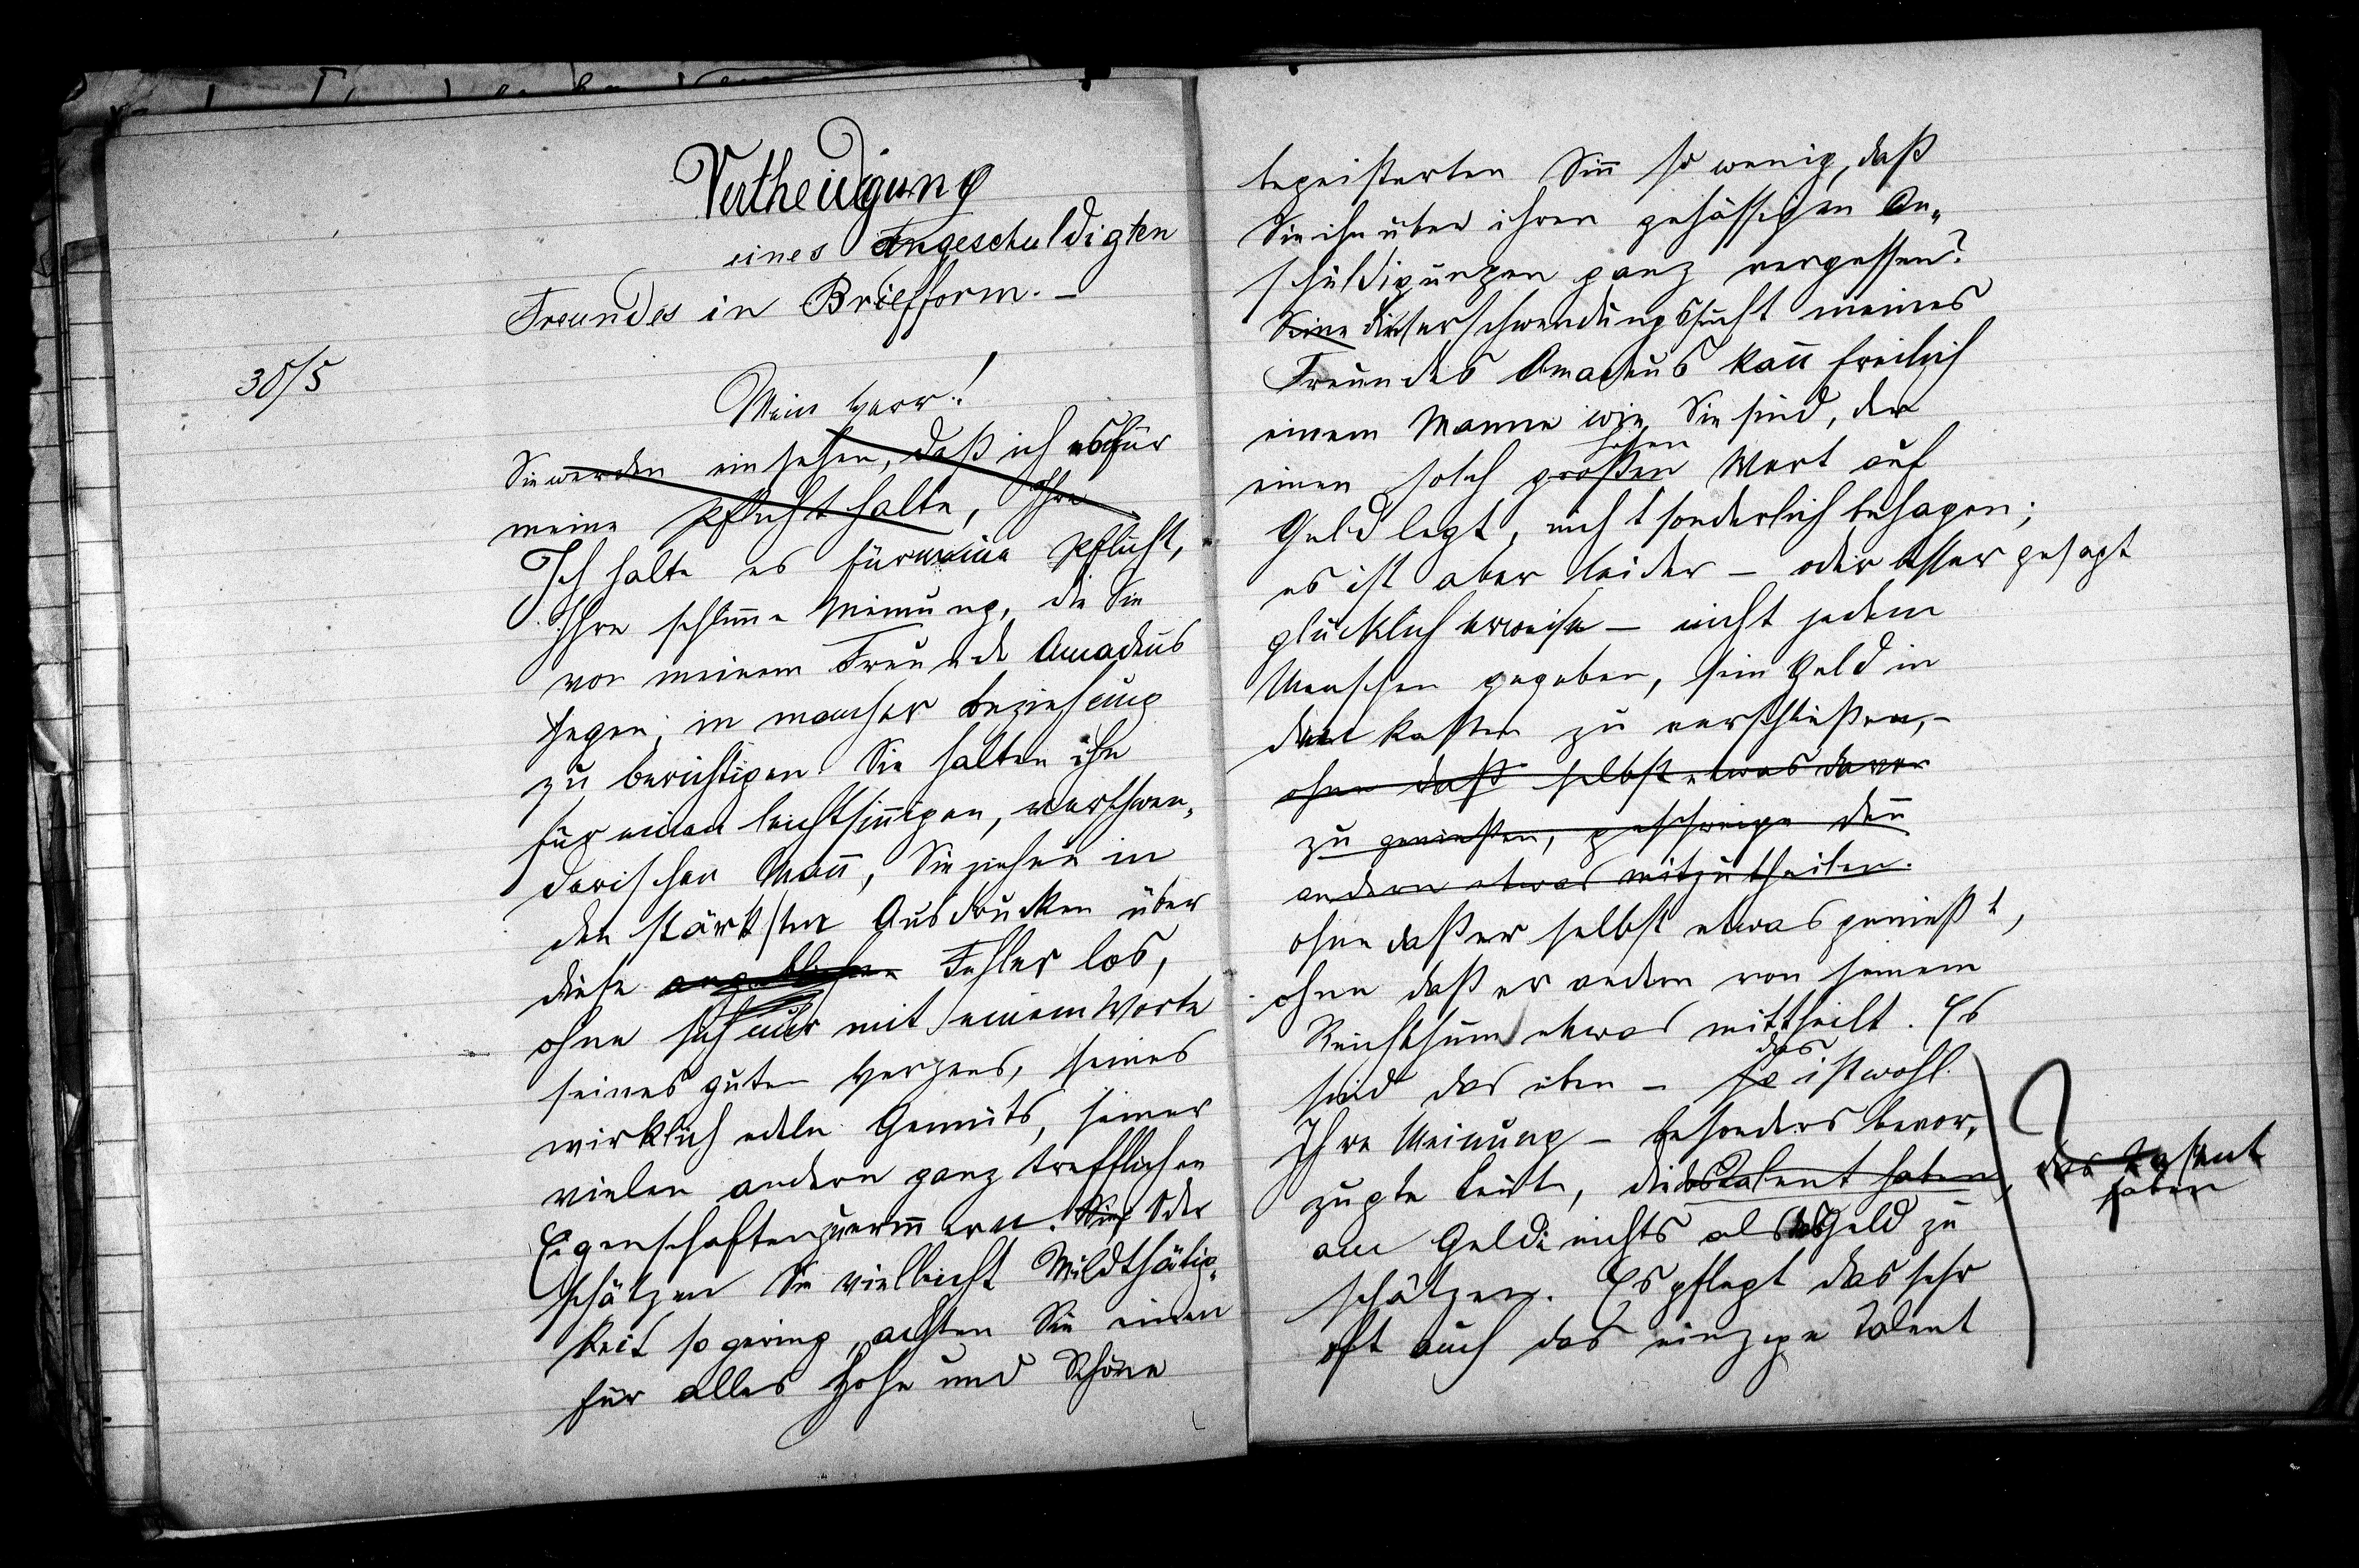 Vertheidigung
eines Angeschuldigten
Freundes in Briefform. –
30/5
Mein Herr!
Sie werden einsehen, daß ich es für
meine Pflicht halte, Ihre
Ich halte es für meine Pflicht,
Ihre schlimme Meinung, die Sie
von meinem Freunde Amadeus
hegen, in mancher Beziehung
zu berichtigen. Sie halten ihn
für einen leichtsinnigen, verschwen„
derischen Mann, Sie ziehen in
den stärksten Ausdrücken über
diese angeblichen Fehler los,
ohne sich nur mit einem Worte
seines guten Herzens, seines
wirklich edeln Gemüts, seiner
vielen andern ganz trefflichen
Eigenschaften zu erinnern. Sind Oder
schätzen Sie vielleicht Mildthätig„
keit so gering, achten Sie einen
für alles Hohe und Schöne
begeisterten Sinn so wenig, daß
Sie ihn über ihren gehässigen An„
schuldigungen ganz vergessen?
Seine die Verschwendungssucht meines
Freundes Amadeus kann freilich
einem Manne wie Sie sind, der
hohen
einen solch großen Wert auf
Geld legt, nicht sonderlich behagen;
es ist aber leider – oder besser gesagt
glücklicherweise – nicht jedem
Menschen gegeben, sein Geld in
den Kasten zu verschließen, –
ohne daß selbst etwas davon
zu genießen, geschweige denn
andern etwas mitzutheilen.
ohne daß er selbst etwas genießt,
ohne daß er andern von seinem
Reichthum etwas mittheilt. Es
das
sind das eben – so ist wohl
Ihre Meinung – besonders bevor„
zugte Leute, die das Talent haben, das Talent
haben
am Gelde nichts als das Geld zu
schätzen. Es pflegt das sehr
oft auch das einzige Talent